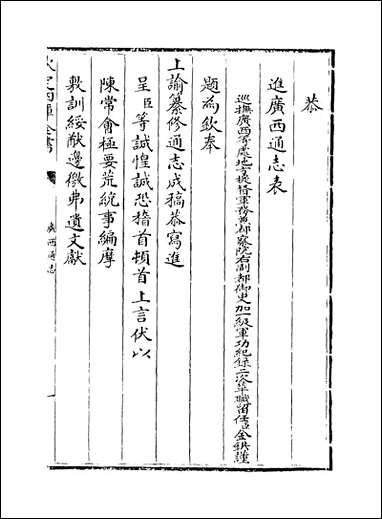 恭
進廣西通志表
巡撫廣西等處地方提督軍務兼都察院右副都御史加一級軍功紀錄二次革職留任臣金鉷謹
題為欽奉
上諭纂修通志成稿恭寫進
呈臣等誠惶誠恐稽首頓首上言伏以
陳常會極要荒統事編摩
敷訓綏猷邊徼弗遺文獻
欽定四庫全書
廣西通志